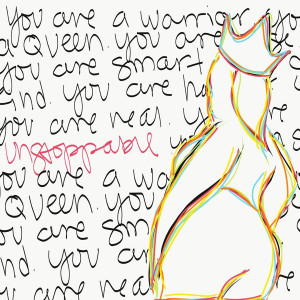 you are a warrior. yo
a Queen. you are
you are smart
ind. you are ha
you are real. y
unstoppable
you are a wa
a Queen. you
you are smar
ind. you ar
you are